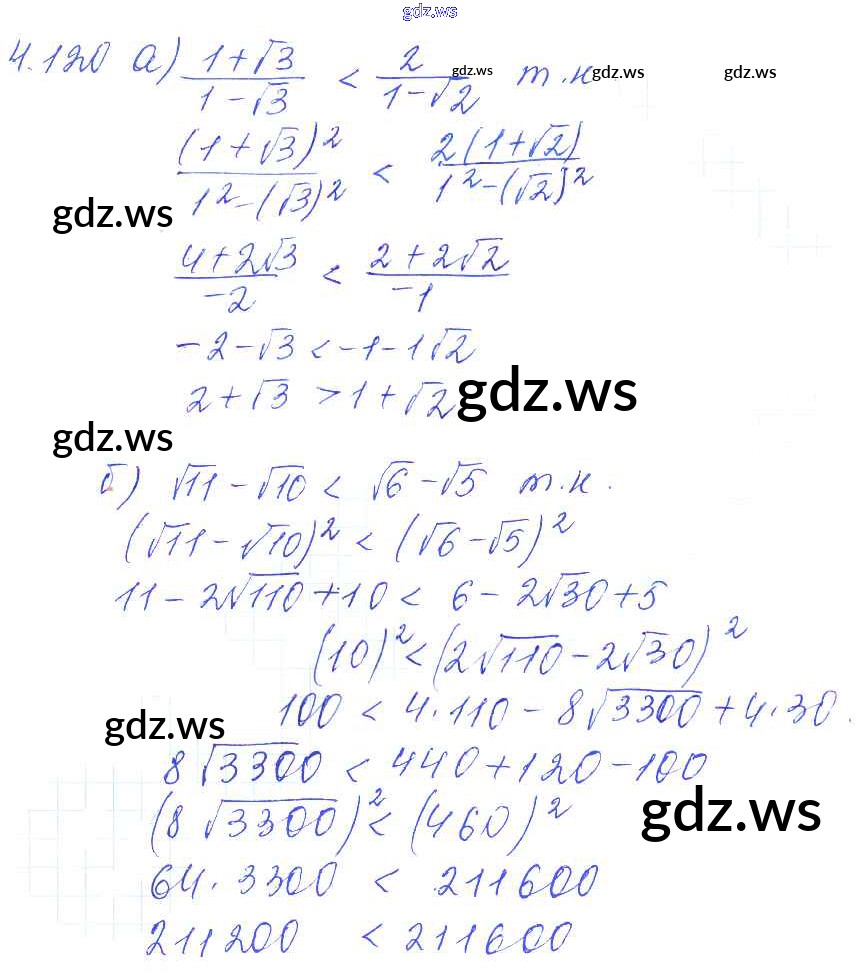 gdz.ws
4.120 а) (1+√3)/(1-√3) < 2/(1-√2) т.к gdz.ws gdz.ws
(1+√3)²/(1²-(√3)²) < 2(1+√2)/(1²-(√2)²)
gdz.ws
(4+2√3)/(-2) < (2+2√2)/(-1)
-2-√3 < -1-1√2
2+√3 > 1+√2 gdz.ws
gdz.ws
б) √11-√10 < √6-√5 т.к.
(√11-√10)² < (√6-√5)²
11-2√110+10 < 6-2√30+5
(10)² < (2√110-2√30)²
100 < 4·110-8√3300+4·30.
gdz.ws
8√3300 < 440+120-100
(8√3300)² < (460)²
gdz.ws
64·3300 < 211600
211200 < 211600